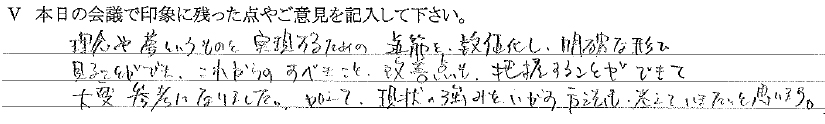 V 本日の会議で印象に残った点やご意見を記入して下さい。
理念や夢というものを実現するための道筋を、数値化し、明確な形で
見ることができ、これからのすべきこと、改善点も、把握することができて
大変参考になりました。加えて、現状の強みをいかす方法も、考えていきたいと思います。